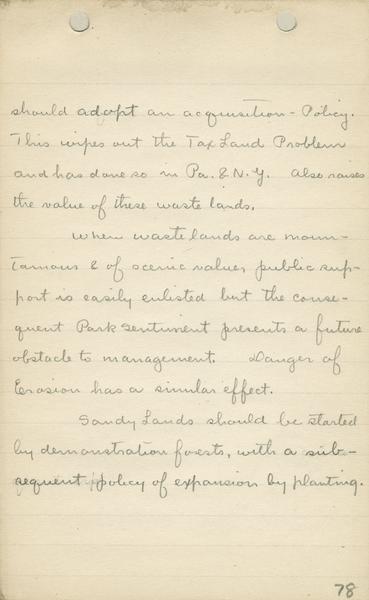 should adopt an acquisition - Policy.
This wipes out the Tax Land Problem
and has done so in Pa. & N.Y. Also raises
the value of these waste lands.
When waste lands are moun-
tainous & of scenic value, public sup-
port is easily enlisted but the conse-
quent Park sentiment presents a future
obstacle to management. Danger of
Erosion has a similar effect.
Sandy Lands should be started
by demonstration forests, with a sub-
sequent policy of expansion by planting.
78